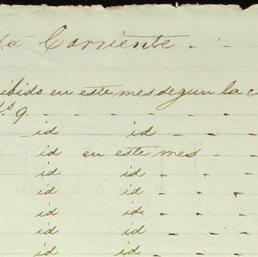 Corriente
cibido en este mes segun la c
Nos 9
id id
id en este mes
id id
id id
id id
id id
id id